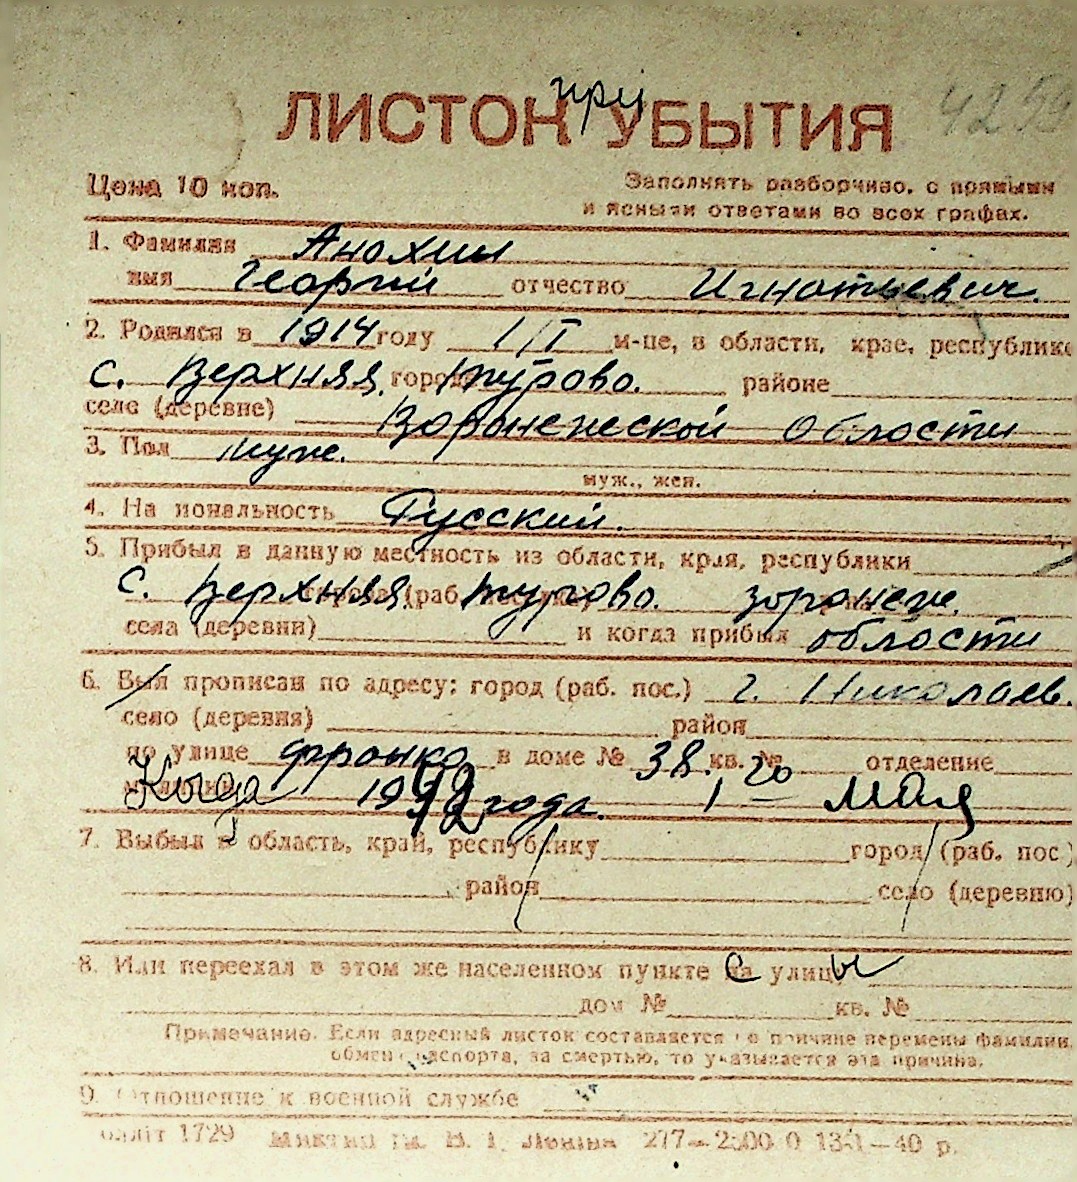 при
ЛИСТОК УБЫТИЯ
Цена 10 коп.
Заполнять разборчиво, с прямыми
и ясными ответами во всех графах.
1. Фамилия Анохин
имя Георгий отчество Игнатьевич.
2. Родился в 1914 году 1/I м-це, в области, крае, республике
с. Верхняя городе Турово. районе
селе (деревне) Воронежской области
3. Пол муж.
муж., жен.
4. Национальность Русский.
5. Прибыл в данную местность из области, края, республики
с. Верхняя Турово. Воронеж.
села (деревни) и когда прибыл области
6. Был прописан по адресу: город (раб. пос.) г. Николаев.
село (деревня) район
по улице Франко в доме № 38. кв. № отделение
Когда 1942 года. 1го мая
7. Выбыл в область, край, республику город (раб. пос.)
район село (деревню)
8. Или переехал в этом же населенном пункте с улицы
дом № кв. №
Примечание. Если адресный листок составляется по причине перемены фамилии,
обмен паспорта, за смертью, то указывается эта причина.
9. Отношение к военной службе
1729 277—2500 40 р.